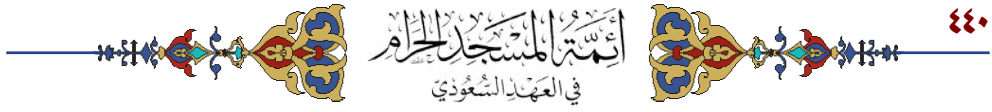 ٤٤٠
أَئِمَّةُ الْمَسْجِدِ الْحَرَامِ
فِي الْعَهْدِ السُّعُودِيّ